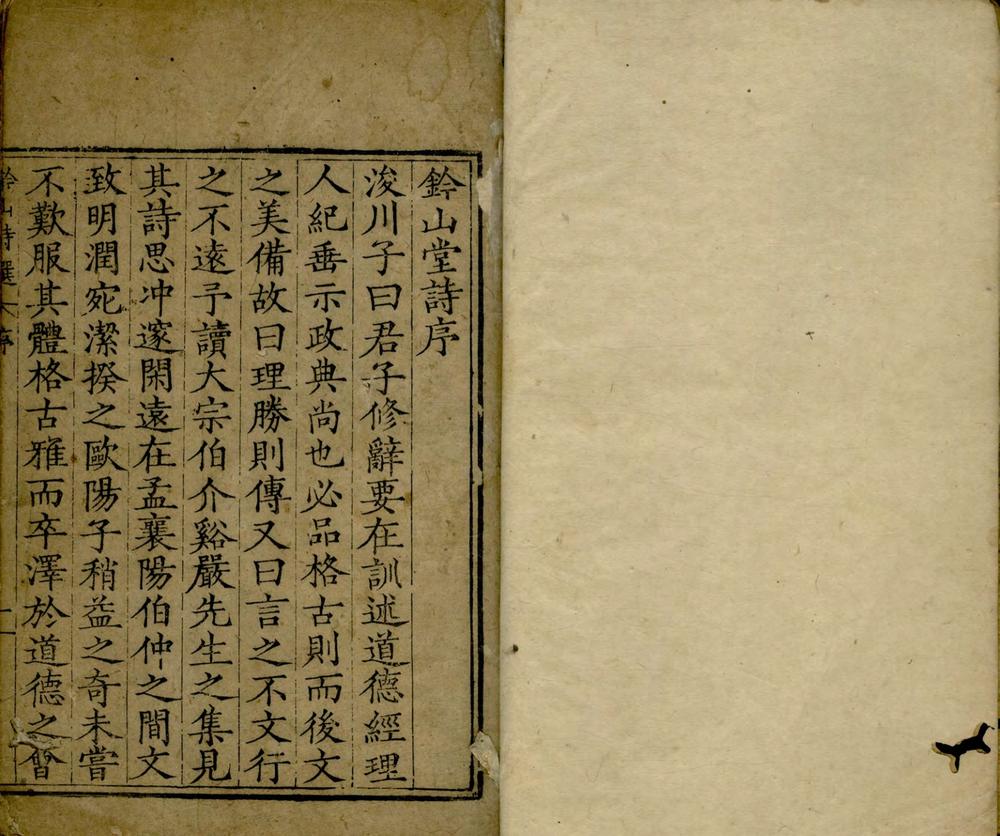 鈐山堂詩序
浚川子曰君子修辭要在訓述道德經理
人紀垂示政典尚也必品格古則而後文
之美備故曰理勝則傳又曰言之不文行
之不遠予讀大宗伯介谿嚴先生之集見
其詩思冲邃閑遠在孟襄陽伯仲之間文
致明潤宛潔揆之歐陽子稍益之奇未嘗
不歎服其體格古雅而卒澤於道德之會
鈐山詩選 序 一